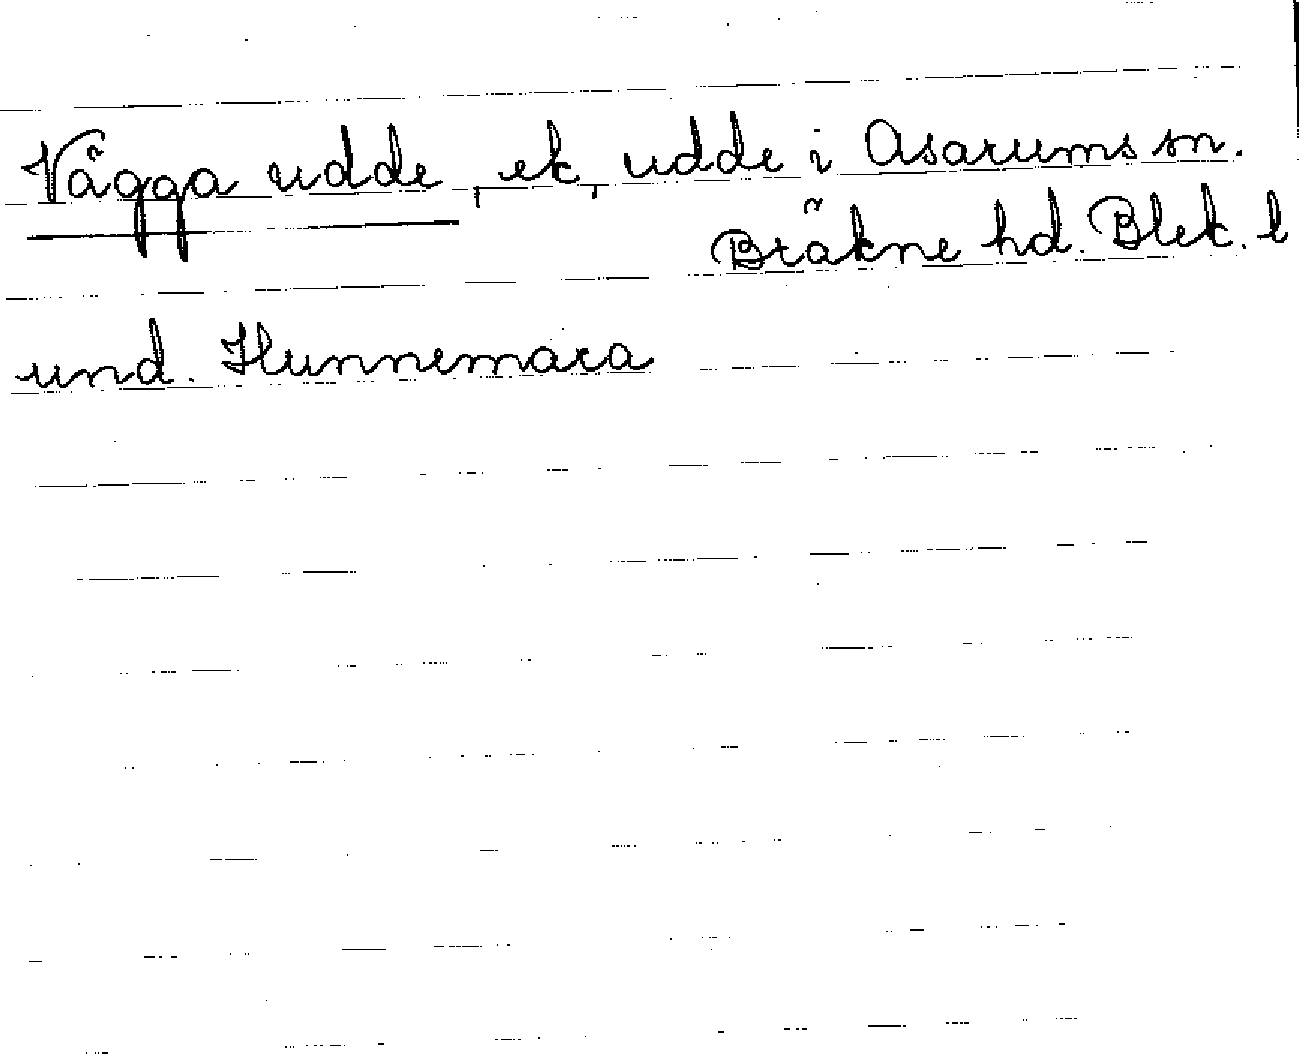 Vägga udde, ek, udde i Asarums sn.
Bräkne hd. Blek. l
und. Hunnemara